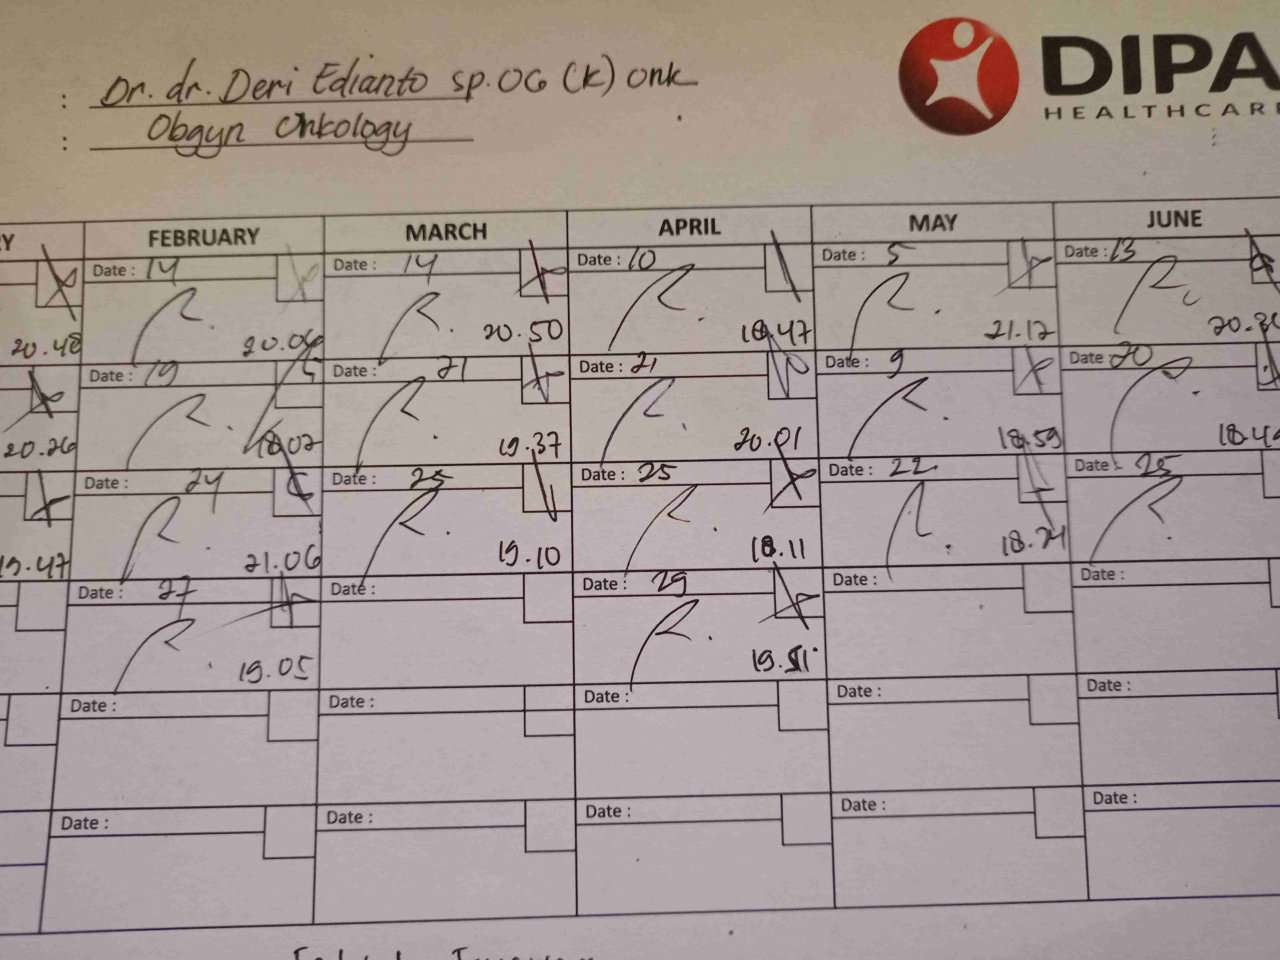 : Dr. dr. Deri Edianto sp.OG (K) Onk
: Obgyn Onkology
DIPA
HEALTHCARE
RY FEBRUARY MARCH APRIL MAY JUNE
Date : 14 Date : 14 Date : 10 Date : 5 Date : 13
20.48 20.06 20.50 18.47 21.12
Date : 19 Date : 21 Date : 21 Date : 9 Date : 20
20.26 18.02 19.37 20.01 18.59
Date : 24 Date : 25 Date : 25 Date : 22 Date : 25
19.47 21.06 19.10 18.11 18.21
Date : 27 Date : Date : 29 Date : Date :
19.05 19.51
Date : Date : Date : Date : Date :
Date : Date : Date : Date : Date :